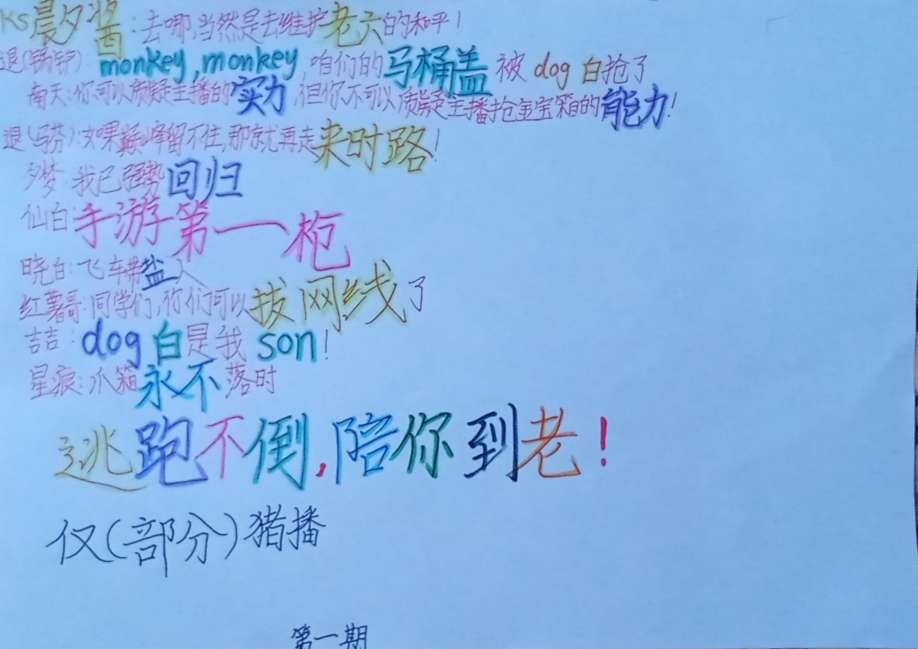 KS晨夕酱:去哪,当然是去维护老六的和平!
退(锅铲):monkey,monkey,咱们的马桶盖被dog白抢了
南天:你可以质疑主播的实力,但你不可以质疑主播抢宝箱的能力!
退(马芬):如果巅峰留不住,那就再走来时路!
夕梦:我已强势回归
仙白:手游第一枪
晓白:飞车带盐人
红薯哥:同学们,你们可以拔网线了
吉吉:dog白是我son!
星痕:爪箱永不落时
逃跑不倒,陪你到老!
仅(部分)猪播
第一期